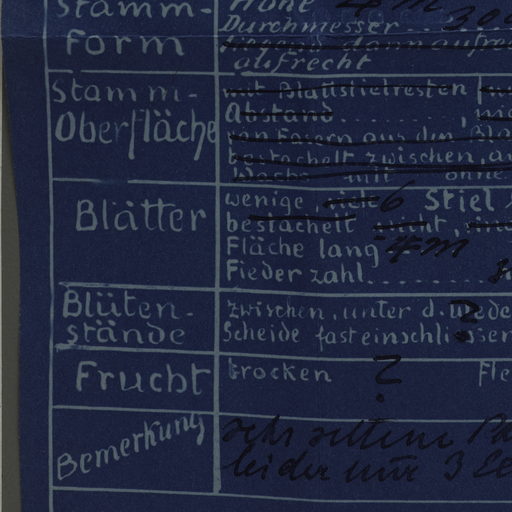 Stamm-
form
Höhe 4 m
Durchmesser . . . 30
aufrecht
Stamm-
Oberfläche
mit Blattstielresten
Abstand . . . . . . . . ,
von Fasern aus den
bestachelt zwischen,
Wachs mit ohne
Blätter
wenige, viele 6 Stiel
bestachelt nicht,
Fläche lang 4 m
Fiederzahl . . . . . . .
Blüten-
stände
zwischen, unter d.
Scheide fast einschließen
?
Frucht
trocken ?
Bemerkung
sehr seltene
leider nur 3